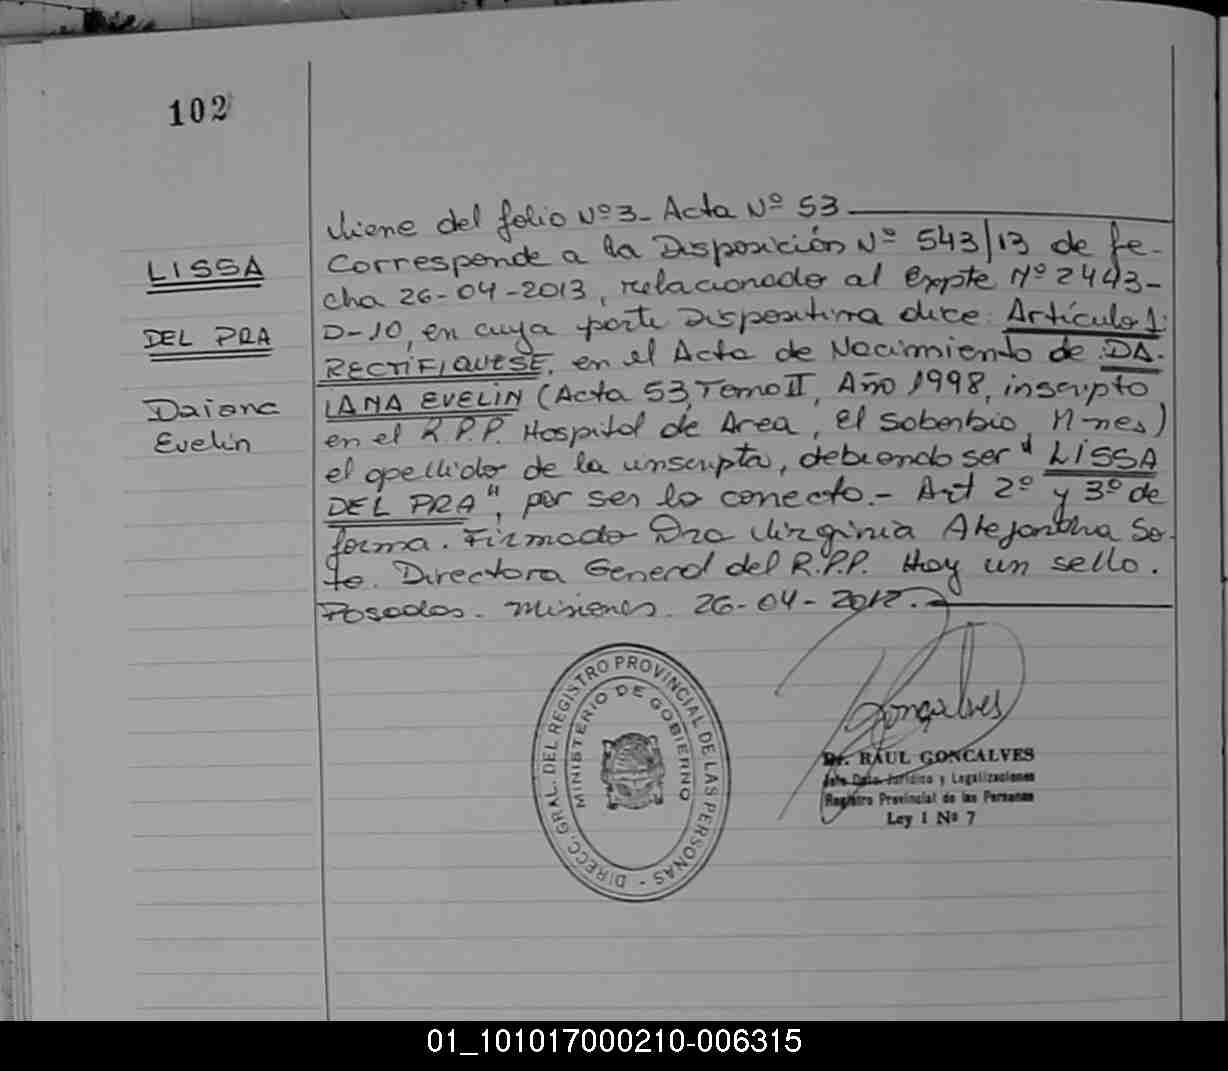 102
LISSA
DEL PRA
Daiana
Evelin
Viene del folio Nº3- Acta Nº 53
Corresponde a la Disposición Nº 543/13 de fe-
cha 26-04-2013, relacionado al Expte Nº 2443-
D-10, en cuya parte Dispositiva dice: Artículo 1:
RECTIFIQUESE, en el Acta de Nacimiento de DA-
IANA EVELIN (Acta 53, Tomo II, Año 1998, inscripto
en el R.P.P. Hospital de Area, El Soberbio, M-nes)
el apellido de la inscripta, debiendo ser "LISSA
DEL PRA", por ser lo correcto.- Art 2º y 3º de
forma. Firmado Dra Virginia Alejandra So-
to. Directora General del R.P.P. Hay un sello.
Posadas. Misiones. 26-04-2012.
DIRECC. GRAL. DEL REGISTRO PROVINCIAL DE LAS PERSONAS -
MINISTERIO DE GOBIERNO
Gonçalves
Dr. RAUL GONCALVES
Jefe Dpto. Jurídico y Legalizaciones
Registro Provincial de las Personas
Ley I Nº 7
01_101017000210-006315